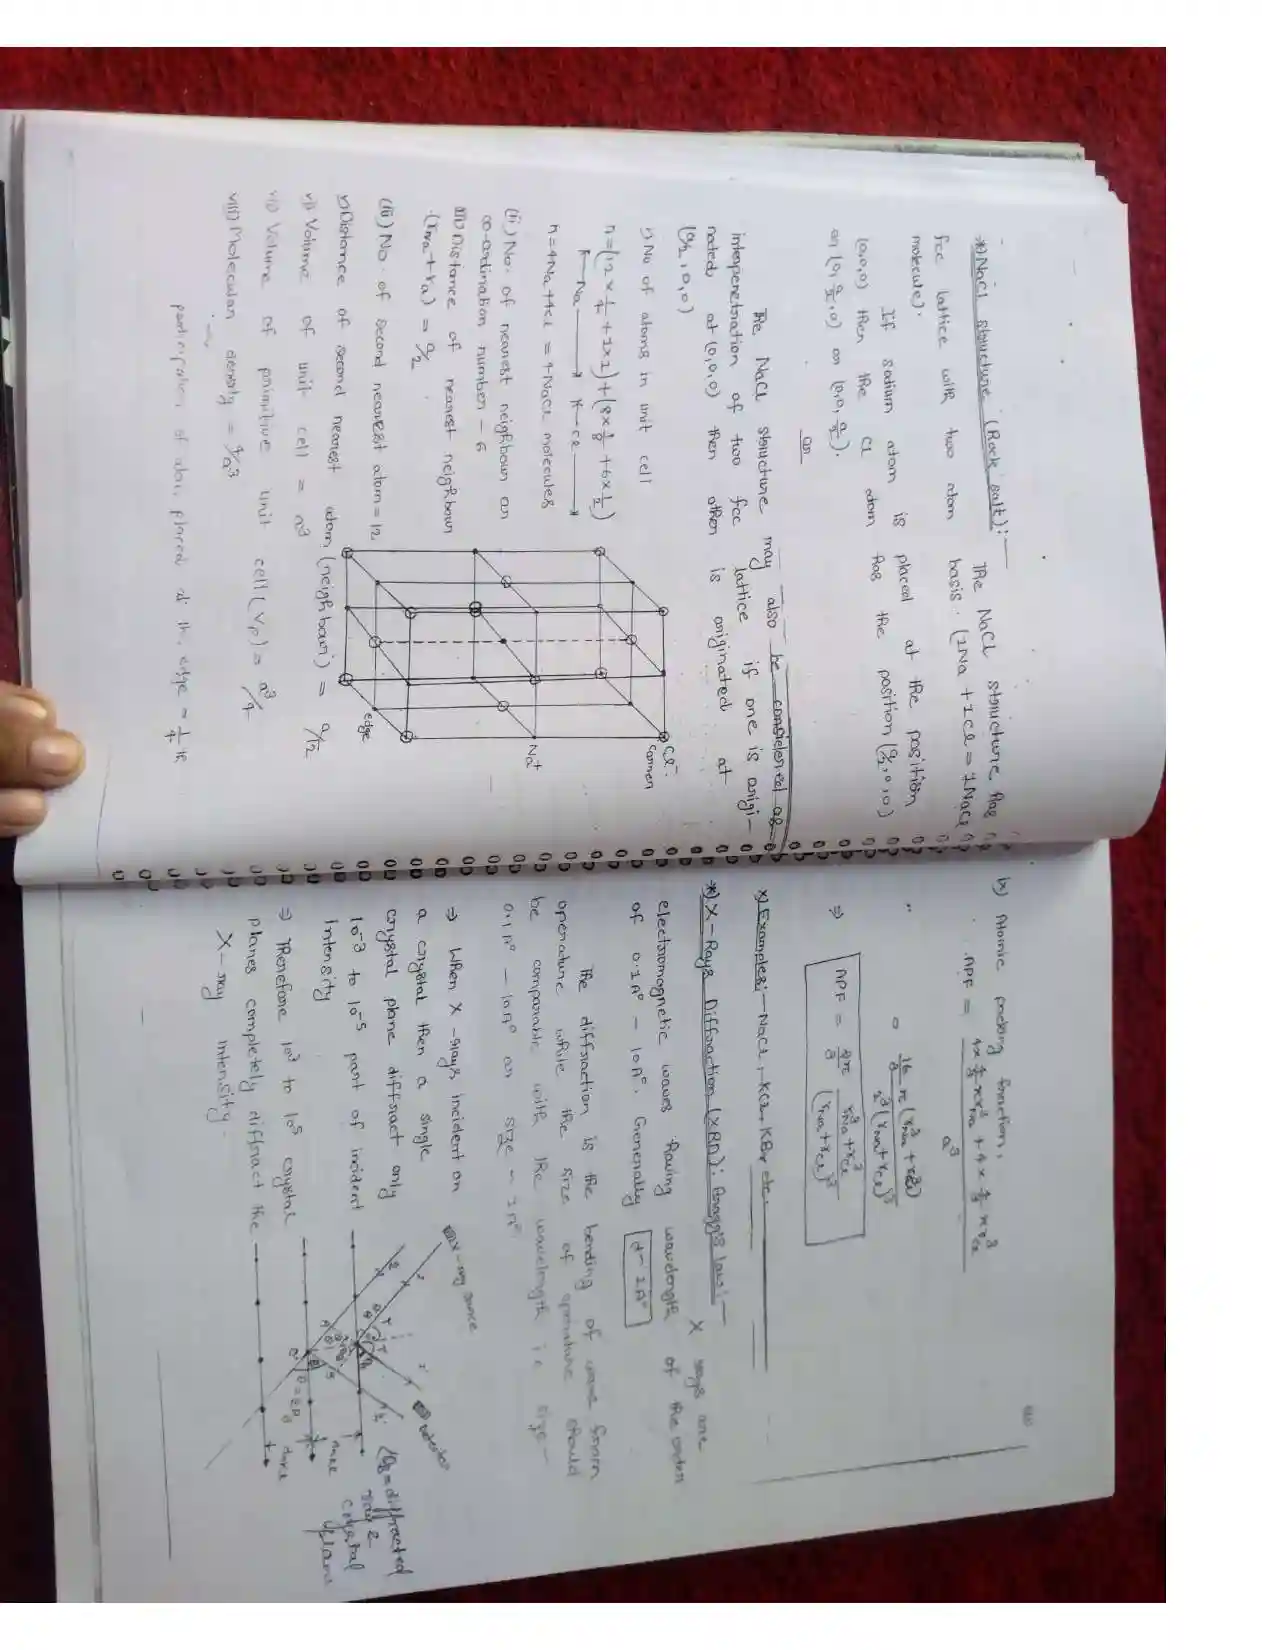 *) NaCl structure (Rock salt):— The NaCl structure has
fcc lattice with two atom basis. (1Na + 1Cl = 1NaCl
molecule).
If sodium atom is placed at the position
(0,0,0) then the Cl atom has the position (a/2, 0, 0)
or (0, a/2, 0) or (0, 0, a/2).
or
The NaCl structure may also be considered as
interpenetration of two fcc lattice if one is origi-
nated at (0,0,0) then other is originated at
(a/2, 0, 0)
i) No of atoms in unit cell
n = (12 x 1/4 + 1x1) + (8 x 1/8 + 6 x 1/2)
Na Cl
n = 4Na + 4Cl = 4 NaCl molecules
(ii) No. of nearest neighbour or
co-ordination number - 6
iii) Distance of nearest neighbour
(rNa + ra) = a/2
(iv) No. of second nearest atom = 12
v) Distance of second nearest atom (neighbour) = a/√2
vi) Volume of unit cell = a³
vii) Volume of primitive unit cell (Vp) = a³/4
viii) Molecular density = 4/a³
placed at the edge = 1/4
Cl⁻
corner
Na⁺
edge
ix) Atomic packing fraction,
APF = 4x 4/3 πr³Na + 4 x 4/3 πr³Cl / a³
= 16/3 π (r³Na + r³Cl) / 2³(rNa + rCl)³
⇒ APF = 2π/3 r³Na + r³Cl / (rNa + rCl)³
x) Examples:— NaCl, KCl, KBr etc.
*) X-Rays Diffraction (XRD): Bragg's law:—
X rays are
electromagnetic waves having wavelength of the order
of 0.1A° – 10A°. Generally d ~ 1A°
The diffraction is the bending of wave from
aperature while the size of aperature should
be comparable with the wavelength i.e size –
0.1A° – 10A° or size ~ 1A°
⇒ When X-rays incident on
a crystal then a single
crystal plane diffract only
10⁻³ to 10⁻⁵ part of incident
intensity
⇒ Therefore 10³ to 10⁵ crystal
planes completely diffract the
X-ray intensity.
X-ray source
Detector
diffracted
ray &
crystal
plane